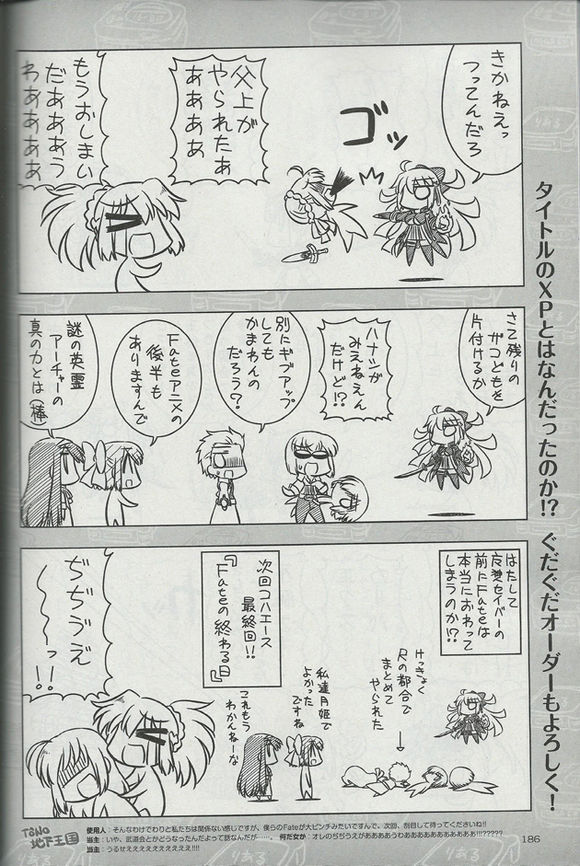 きかねえっ
つってんだろ
ゴッ
父上が
やられたぁ
ああああ
もうおしまい
だああああう
わああああ
さて残りの
ザコどもを
片付けるか
ハナシが
みえねえん
だけど!?
別にギブアップ
しても
かまわんの
だろう?
Fateアニメの
後半も
ありますんで
謎の英霊
アーチャーの
真の力とは(棒
はたして
反転セイバーの
前にFateは
本当におわって
しまうのか!?
けっきょく
尺の都合で
まとめて
やられた
私達月姫で
よかった
ですね
これもう
わかんねーな
次回コハエース
最終回!!
『Fateの終わる日』
ぢぢうえ
〜〜っ!!
タイトルのXPとはなんだったのか!? ぐだぐだオーダーもよろしく!
TōNO
地下王国
使用人:そんなわけでわりと私たちは関係ない感じですが、僕らのFateが大ピンチみたいですんで、次回、刮目して待ってくださいね!!
当主:いや、武道会とかどうなったんだよって話なんだが……。 何だ女か:オレのぢぢうえがあああああうわあああああああああああああ!!!?????
当主:うるせええええええええええ!!!!
186